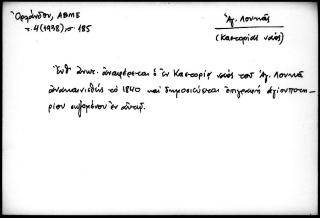 Ὀρλάνδου, ΑΒΜΕ
τ. 4 (1938), σ 185
Ἁγ. Λουκᾶς
(Καστοριᾶς ναός)
Ἔνθ' ἀνωτ. ἀναφέρεται ὁ ἐν Καστορίᾳ ναὸς τοῦ Ἁγ. Λουκᾶ
ἀνακαινισθεὶς τὸ 1840 καὶ δημοσιεύεται ἐπιγραφὴ ἁγίου ποτη-
ρίου ἐν αὐτῷ.